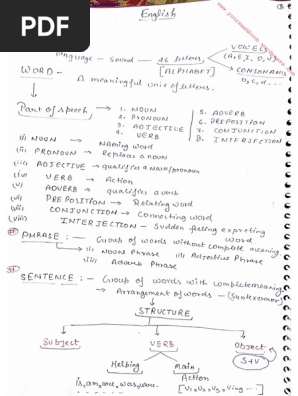 PDF
English
Language - Sound - 26 letters
VOWELS
(A, E, I, O, U)
[ALPHABET]
CONSONANTS
B, C, D, ...
WORD -
A meaningful unit of letters.
Part of speech → 1. NOUN
2. PRONOUN
3. ADJECTIVE
4. VERB
5. ADVERB
6. PREPOSITION
7. CONJUNCTION
8. INTERJECTION
(i) NOUN → Naming word
(ii) PRONOUN → Replaces a noun
(iii) ADJECTIVE → qualifies a noun/pronoun
(iv) VERB → Action
(v) ADVERB → qualifies a verb
(vi) PREPOSITION → Relating word
(vii) CONJUNCTION → Connecting word
(viii) INTERJECTION - Sudden feeling expreting word
PHRASE : - Group of words without complete meaning
(i) Noun Phrase (ii) Adjective Phrase
(iii) Adverb Phrase
SENTENCE : - Group of words with complete meaning
→ Arrangement of words -
STRUCTURE
Subject VERB Object
S+V
Helping Main
Action
is, am, are, was, were.
[V1, V2, V3, Ving ...]